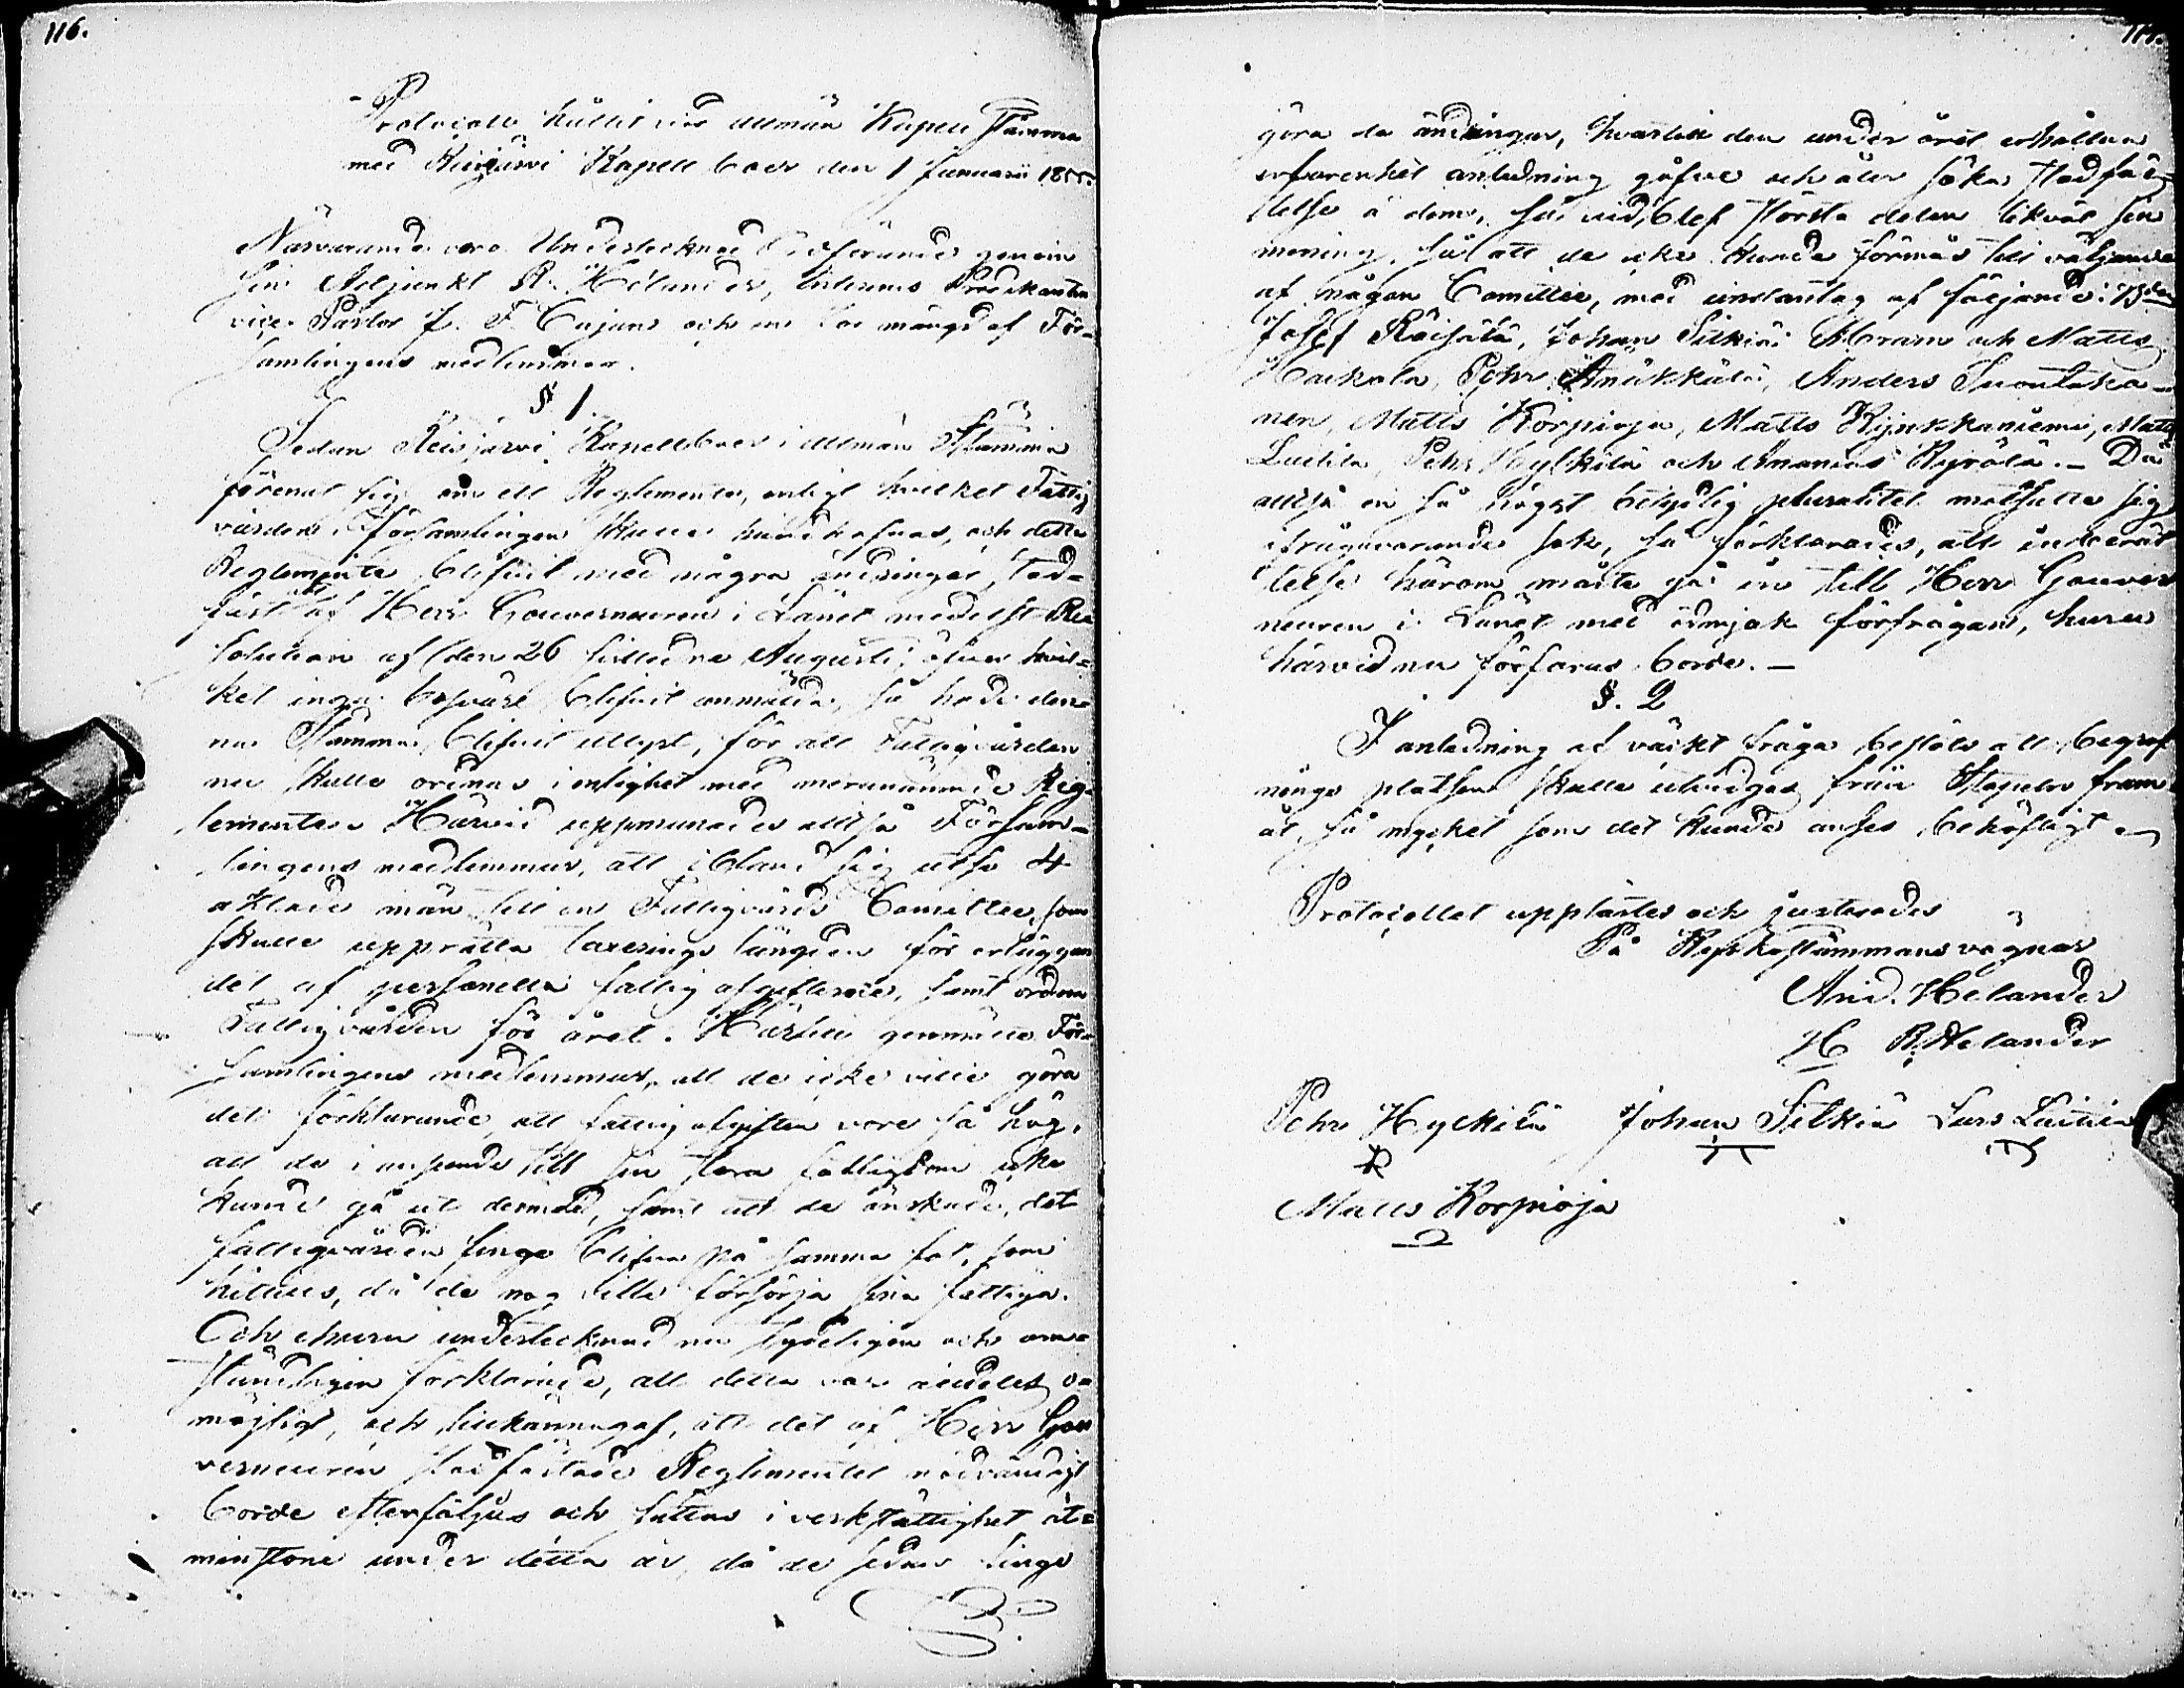 116.
Protocoll hållit vid allmän Kapell Stämma
med Reisjärvi Kapell boer den 1 Januarii 1855.
Närvarande voro Undertecknad Ordförande genom
sin Adjunkt R. Helander, Interims Predikanten
vice Pastor J. F. Cajan och en stor mängd af För-
samlingens medlemmar.
§ 1.
Sedan Reisjärvi Kapellboer i allmän Stämma
förenat sig om ett Reglemente, enligt hvilket Fattig
vården i Församlingen skulle handhafvas, och detta
Reglemente blifvit med några ändringar, stad-
fäst af Herr Gouverneuren i Länet medelst Re
solution af den 26 sistledne Augusti, öfver hvil-
ket inga besvär blifvit anmälda, så hade den-
na Stämma blifvit utlyst, för att Fattigvården
nu skulle ordnas i enlighet med meranämnde Reg-
lemente. Härvid uppmanades alltså Försam-
lingens medlemmar, att ibland sig utse 4
aktade män till en Fattigvårds Comittée, som
skulle upprätta taxerings längden för erläggan
det af personella fattig afgifterne, samt ordna
Fattigvården för året. Härtill genmälte För-
samlingens medlemmar, att de icke ville göra
det förklarande, att fattig afgiften vore så hög,
att de i anseende till sin stora fattigdom icke
kunde gå ut dermed, samt att de önskade, det
fattigvården finge blifva på samma fot, som
hittils, då de nog ville försörja sina fattiga.
Och ehuru undertecknad nu tydeligen och om-
ständligen förklarade, att detta var aldeles o-
möjligt, och tillkännagaf, att det af Herr Gou
verneuren stadfästade Reglementet nödvändigt
borde efterföljas och sättas i verkställighet åt-
minstone under detta år, då de sedan finge
göra de ändringar, hvartill den under året erhållna
erfarenhet anledning gåfve och åter söka stadfäs-
telse å dem, så vid blef största delen likväl sin
mening, så att de icke kunde förmås till väljande
af någon Comittée, med undantag af följande: Bdn
Josef Räisälä, Johan Silkiä Abram och Matts
Haikola, Pehr Ämäkkälä, Anders Suontaka-
nen, Matts Korpioja, Matts Kynkkäniemi, Matts
Luitila, Pehr Hylkilä och Ananias Kyrölä. - Då
alltså en så högst betydlig pluralitet motsatte sig
ifrågavarande sak, så förklarades, att underrät
telse härom måste gå in till Herr Gouver
neuren i Länet med ödmjuk förfrågan, huru
härvid nu förfaras borde. -
§. 2
I anledning af väckt fråga beslöts att begraf
nings platsen skulle utvidgas från Stapeln fram
åt, så mycket som det kunde anses behöfligt
Protocollet upplästes och justerades
På Kyrkostämmans vägnar
And. Helander
H R. Helander
Pehr Hylkilä Johan Silkiä Lars Luitila
Matts Korpioja